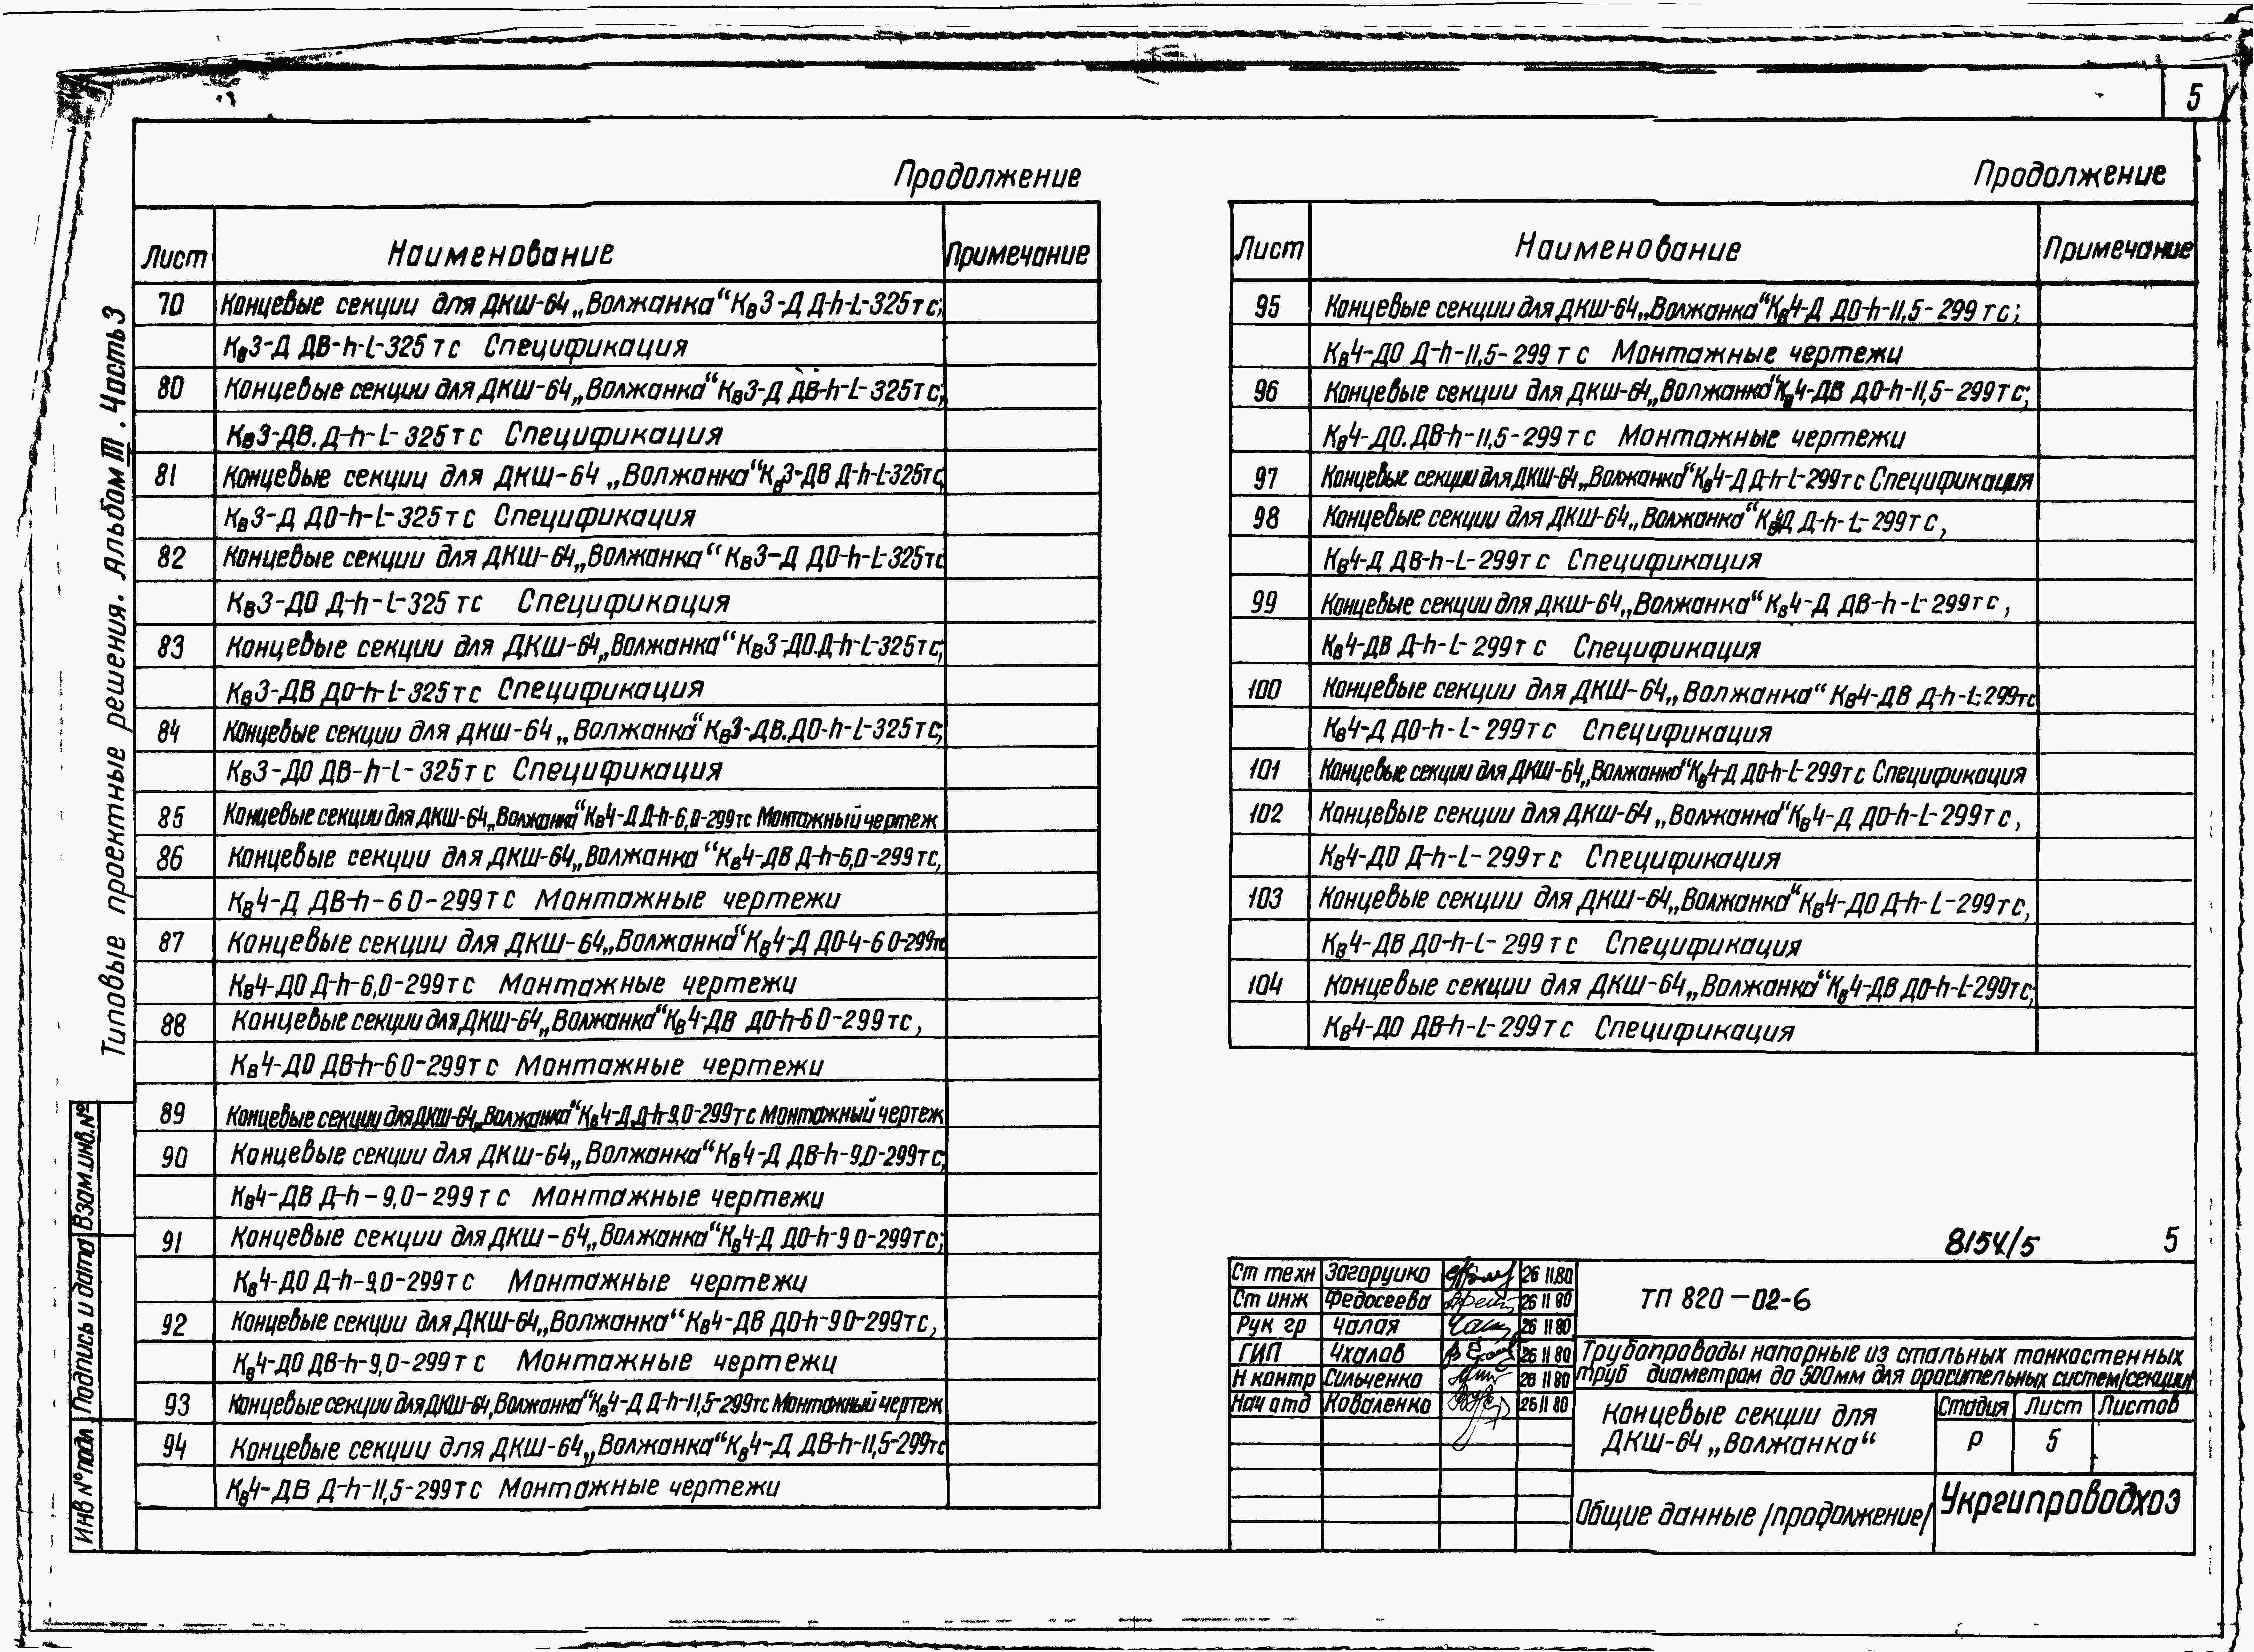 5
Типовые проектные решения. Альбом III. Часть 3
Продолжение
Лист Наименование Примечание
70 Концевые секции для ДКШ-64 „Волжанка“ Кв3-Д Д-h-L-325тс;
Кв3-Д ДВ-h-L-325 тс Спецификация
80 Концевые секции для ДКШ-64 „Волжанка“ Кв3-Д ДВ-h-L-325тс;
Кв3-ДВ.Д-h-L-325тс Спецификация
81 Концевые секции для ДКШ-64 „Волжанка“ Кв3-ДВ Д-h-L-325тс,
Кв3-Д ДО-h-L-325тс Спецификация
82 Концевые секции для ДКШ-64 „Волжанка“ Кв3-Д ДО-h-L-325тс
Кв3-ДО Д-h-L-325 тс Спецификация
83 Концевые секции для ДКШ-64 „Волжанка“ Кв3-ДО.Д-h-L-325тс;
Кв3-ДВ ДО-h-L-325тс Спецификация
84 Концевые секции для ДКШ-64 „Волжанка“ Кв3-ДВ.ДО-h-L-325тс;
Кв3-ДО ДВ-h-L-325тс Спецификация
85 Концевые секции для ДКШ-64 „Волжанка“ Кв4-Д Д-h-6,0-299тс Монтажный чертеж
86 Концевые секции для ДКШ-64 „Волжанка“ Кв4-ДВ Д-h-6,0-299тс,
Кв4-Д ДВ-h-6 0-299тс Монтажные чертежи
87 Концевые секции для ДКШ-64 „Волжанка“ Кв4-Д ДО-4-6 0-299тс
Кв4-ДО Д-h-6,0-299тс Монтажные чертежи
88 Концевые секции для ДКШ-64 „Волжанка“ Кв4-ДВ ДО-h-6 0-299тс,
Кв4-ДО ДВ-h-6 0-299тс Монтажные чертежи
89 Концевые секции для ДКШ-64 „Волжанка“ Кв4-Д.Д-h-9,0-299тс Монтажный чертеж
90 Концевые секции для ДКШ-64 „Волжанка“ Кв4-Д ДВ-h-9,0-299тс;
Кв4-ДВ Д-h-9,0-299тс Монтажные чертежи
91 Концевые секции для ДКШ-64 „Волжанка“ Кв4-Д ДО-h-9 0-299тс;
Кв4-ДО Д-h-9,0-299тс Монтажные чертежи
92 Концевые секции для ДКШ-64 „Волжанка“ Кв4-ДВ ДО-h-9 0-299тс,
Кв4-ДО ДВ-h-9,0-299тс Монтажные чертежи
93 Концевые секции для ДКШ-64 „Волжанка“ Кв4-Д Д-h-11,5-299тс Монтажный чертеж
94 Концевые секции для ДКШ-64 „Волжанка“ Кв4-Д ДВ-h-11,5-299тс
Кв4-ДВ Д-h-11,5-299тс Монтажные чертежи
Продолжение
Лист Наименование Примечание
95 Концевые секции для ДКШ-64 „Волжанка“ Кв4-Д ДО-h-11,5-299тс;
Кв4-ДО Д-h-11,5-299тс Монтажные чертежи
96 Концевые секции для ДКШ-64 „Волжанка“ Кв4-ДВ ДО-h-11,5-299тс;
Кв4-ДО.ДВ-h-11,5-299тс Монтажные чертежи
97 Концевые секции для ДКШ-64 „Волжанка“ Кв4-Д Д-h-L-299тс Спецификация
98 Концевые секции для ДКШ-64 „Волжанка“ Кв4Д Д-h-L-299тс,
Кв4-Д ДВ-h-L-299тс Спецификация
99 Концевые секции для ДКШ-64 „Волжанка“ Кв4-Д ДВ-h-L-299тс,
Кв4-ДВ Д-h-L-299тс Спецификация
100 Концевые секции для ДКШ-64 „Волжанка“ Кв4-ДВ Д-h-L-299тс
Кв4-Д ДО-h-L-299тс Спецификация
101 Концевые секции для ДКШ-64 „Волжанка“ Кв4-Д ДО-h-L-299тс Спецификация
102 Концевые секции для ДКШ-64 „Волжанка“ Кв4-Д ДО-h-L-299тс,
Кв4-ДО Д-h-L-299тс Спецификация
103 Концевые секции для ДКШ-64 „Волжанка“ Кв4-ДО Д-h-L-299тс,
Кв4-ДВ ДО-h-L-299тс Спецификация
104 Концевые секции для ДКШ-64 „Волжанка“ Кв4-ДВ ДО-h-L-299тс;
Кв4-ДО ДВ-h-L-299тс Спецификация
8154/5 5
Ст техн Загоруико 26 11.80
Ст инж Федосеева 26 11 80
Рук гр Чалая 26 11 80
ГИП Чхалов 26 11 80
Н контр Сильченко 26 11 80
Нач отд Коваленко 26 11 80
ТП 820-02-6
Трубопроводы напорные из стальных тонкостенных
труб диаметром до 500мм для оросительных систем/секции/
Концевые секции для
ДКШ-64 „Волжанка“
Стадия Лист Листов
Р 5
Общие данные /продолжение/
Укргипроводхоз
Взам.инв.№
Подпись и дата
Инв № подл